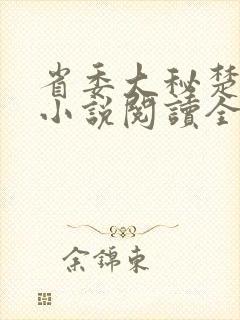 省委大秘楚
小说閱讀全
余錦東